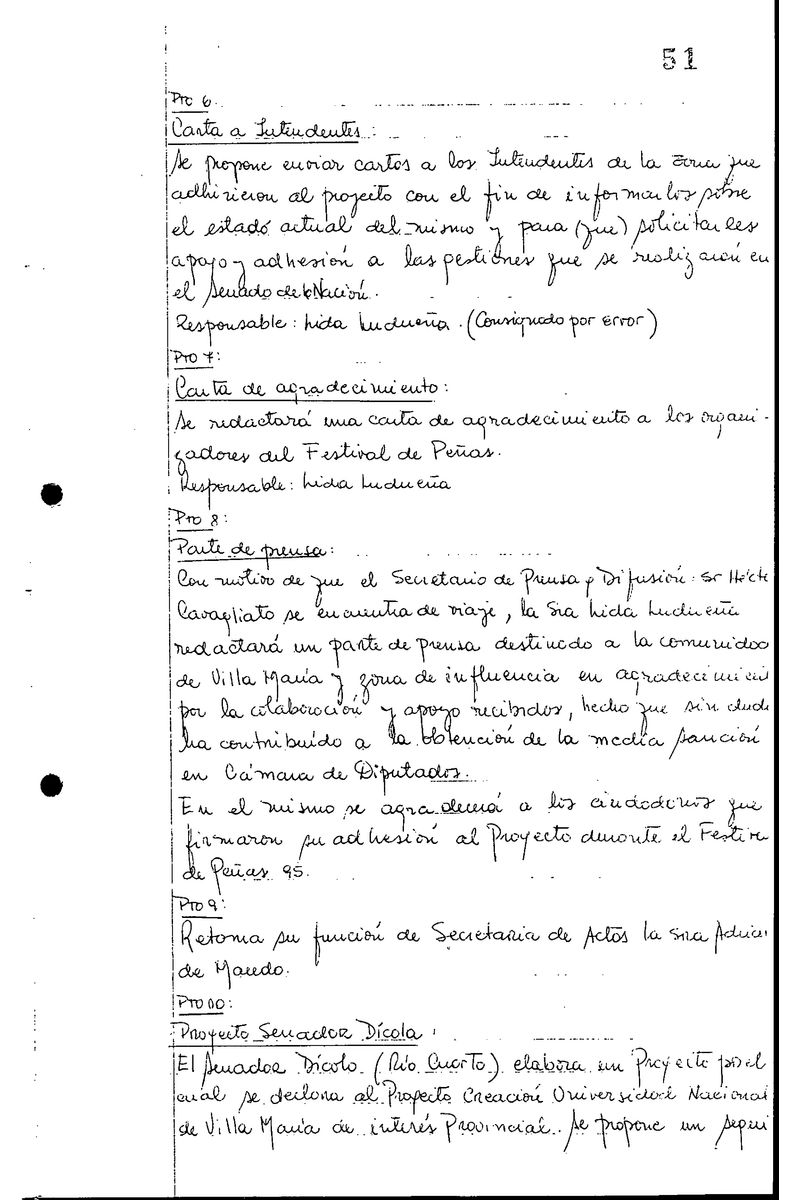 51
Pto 6.
Carta a Intendentes:
Se propone enviar cartas a los Intendentes de la zona que
adhirieron al proyecto con el fin de informarlos sobre
el estado actual del mismo y para (que) solicitarles
apoyo y adhesión a las gestiones que se realizarán en
el Senado de la Nación.
Responsable: Lida Ludueña. (Consignado por error)
Pto 7:
Carta de agradecimiento:
Se redactará una carta de agradecimiento a los organi-
zadores del Festival de Peñas.
Responsable: Lida Ludueña
Pto 8:
Parte de prensa:
Con motivo de que el Secretario de Prensa y Difusión: Sr Hécto
Cavagliato se encuentra de viaje, la Sra Lida Ludueña
redactará un parte de prensa destinado a la comunidad
de Villa María y zona de influencia en agradecimien
por la colaboración y apoyo recibidos, hecho que sin duda
ha contribuído a la obtención de la media sanción
en Cámara de Diputados.
En el mismo se agradecerá a los ciudadanos que
firmaron su adhesión al Proyecto durante el Festiva
de Peñas 95.
Pto 9:
Retoma su función de Secretaria de Actas la Sra
de Maudo.
Pto 10:
Proyecto Senador Dícola:
El Senador Dícola (Río Cuarto) elabora un Proyecto por el
cual se declara al Proyecto Creación Universidad Nacional
de Villa María de interés Provincial. Se propone un segui